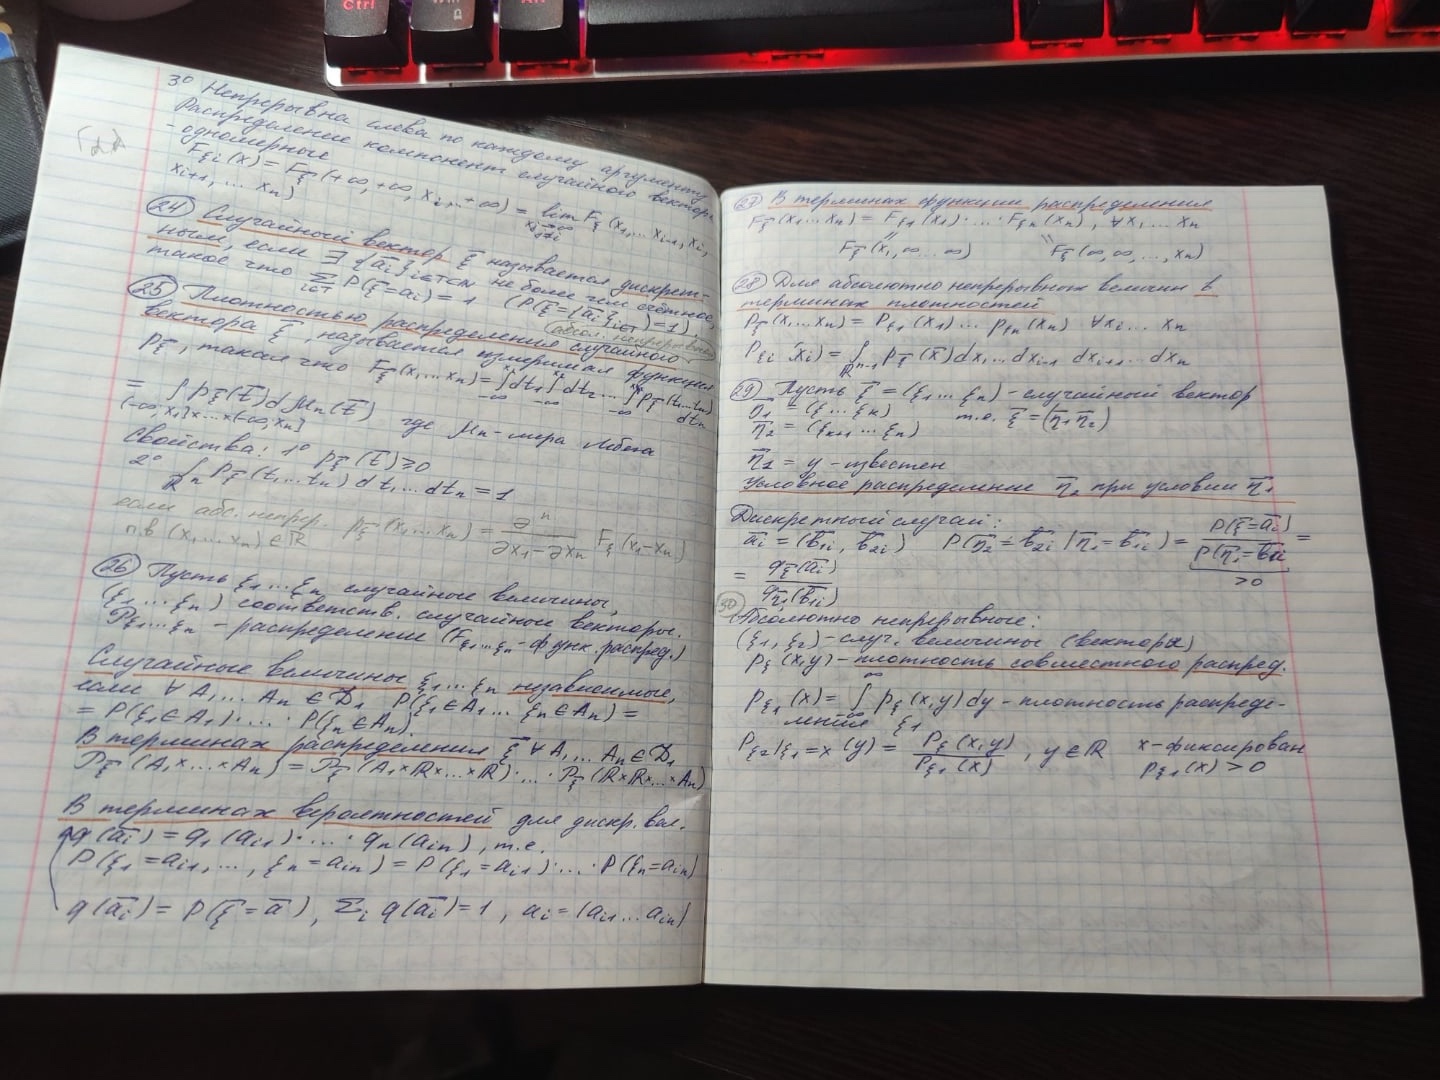 Ctrl
Win
Alt
3° Непрерывна слева по каждому аргументу
Распределение компонент случайного вектора
- одномерные
F_ξi(x) = F_ξ̄(+∞, +∞, x_i, ... +∞) = lim F_ξ̄(x_1, ... x_{i-1}, x_i,
x_{i+1}, ... x_n)
(24) Случайный вектор ξ̄ называется дискрет-
ным, если ∃ {ā_i}_{i∈T} не более чем счётное,
такое что Σ_{i∈T} P(ξ̄=a_i) = 1 (P(ξ̄={ā_i}_{i∈T})=1).
(абсол. непрерывного)
(25) Плотностью распределения случайного
вектора ξ̄, называется измеримая функция
p_ξ̄, такая что F_ξ̄(x_1...x_n) = ∫_{-∞}^{x_1} dt_1 ∫_{-∞}^{x_2} dt_2 ... ∫_{-∞}^{x_n} p_ξ̄(t_1...t_n) dt_n
= ∫_{(-∞,x_1]×...×(-∞,x_n]} p_ξ̄(t̄) dμ_n(t̄) где μ_n - мера Лебега
Свойства: 1° p_ξ̄(t̄) ≥ 0
2° ∫_{ℝ^n} p_ξ̄(t_1...t_n) dt_1...dt_n = 1
если абс. непрер. p_ξ̄(x_1...x_n) = ∂^n / ∂x_1...∂x_n F_ξ̄(x_1...x_n)
п.в (x_1...x_n) ∈ ℝ
(26) Пусть ξ_1...ξ_n случайные величины,
(ξ_1...ξ_n) соответств. случайные векторы.
𝒫_ξ1...ξn - распределение (F_ξ1...ξn - функ. распред.)
Случайные величины ξ_1...ξ_n независимые,
если ∀ A_1...A_n ∈ 𝔇_1 P(ξ_1∈A_1...ξ_n∈A_n) =
= P(ξ_1∈A_1)·...·P(ξ_n∈A_n).
В терминах распределения ξ̄ ∀ A_1...A_n ∈ 𝔇_1
𝒫_ξ̄(A_1×...×A_n) = 𝒫_ξ̄(A_1×ℝ×...×ℝ)·...·𝒫_ξ̄(ℝ×ℝ×...×A_n)
В терминах вероятностей для дискр. вел.
q(ā_i) = q_1(a_i1)·...·q_n(a_in), т.е.
P(ξ_1=a_i1, ..., ξ_n=a_in) = P(ξ_1=a_i1)·...·P(ξ_n=a_in)
q(ā_i) = P(ξ̄=ā), Σ_i q(ā_i)=1, a_i = (a_i1...a_in)
(27) В терминах функции распределения
F_ξ̄(x_1...x_n) = F_ξ1(x_1)·...·F_ξn(x_n), ∀ x_1...x_n
F_ξ̄(x_1, ∞...∞) F_ξ̄(∞, ∞, ..., x_n)
(28) Для абсолютно непрерывных величин в
терминах плотностей
p_ξ̄(x_1...x_n) = p_ξ1(x_1)...p_ξn(x_n) ∀ x_i...x_n
p_ξi(x_i) = ∫_{ℝ^{n-1}} p_ξ̄(x̄) dx_1...dx_{i-1} dx_{i+1}...dx_n
(29) Пусть ξ̄ = (ξ_1...ξ_n) - случайный вектор
η̄_1 = (ξ...ξ_k) т.е. ξ̄ = (η̄_1 η̄_2)
η̄_2 = (ξ_{k+1}...ξ_n)
η̄_1 = y - известен
Условное распределение η̄_2 при условии η̄_1
Дискретный случай:
ā_i = (b̄_1i, b̄_2i) P(η̄_2 = b̄_2i | η̄_1 = b̄_1i) = P(ξ̄=ā_i) / P(η̄_1=b̄_1i) =
>0
= q_ξ̄(ā_i) / q_η̄1(b̄_1i)
(30) Абсолютно непрерывные:
(ξ_1, ξ_2) - случ. величины (вектора)
p_ξ̄(x,y) - плотность совместного распред.
p_ξ1(x) = ∫_{-∞}^{∞} p_ξ̄(x,y) dy - плотность распреде-
ления ξ_1
p_ξ2|ξ1=x (y) = p_ξ̄(x,y) / p_ξ1(x), y∈ℝ x - фиксирован
p_ξ1(x) > 0